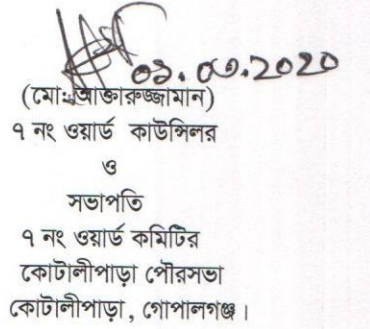 ০১.০৩.2020
(মো: আক্তারুজ্জামান)
৭ নং ওয়ার্ড কাউন্সিলর
ও
সভাপতি
৭ নং ওয়ার্ড কমিটির
কোটালীপাড়া পৌরসভা
কোটালীপাড়া, গোপালগঞ্জ।